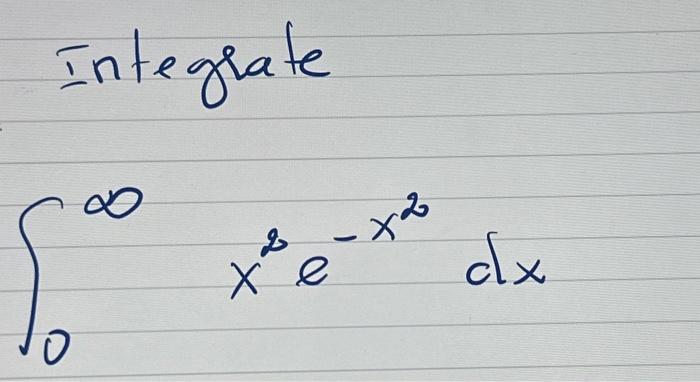 Integrate
∫₀^∞ x² e^{-x²} dx